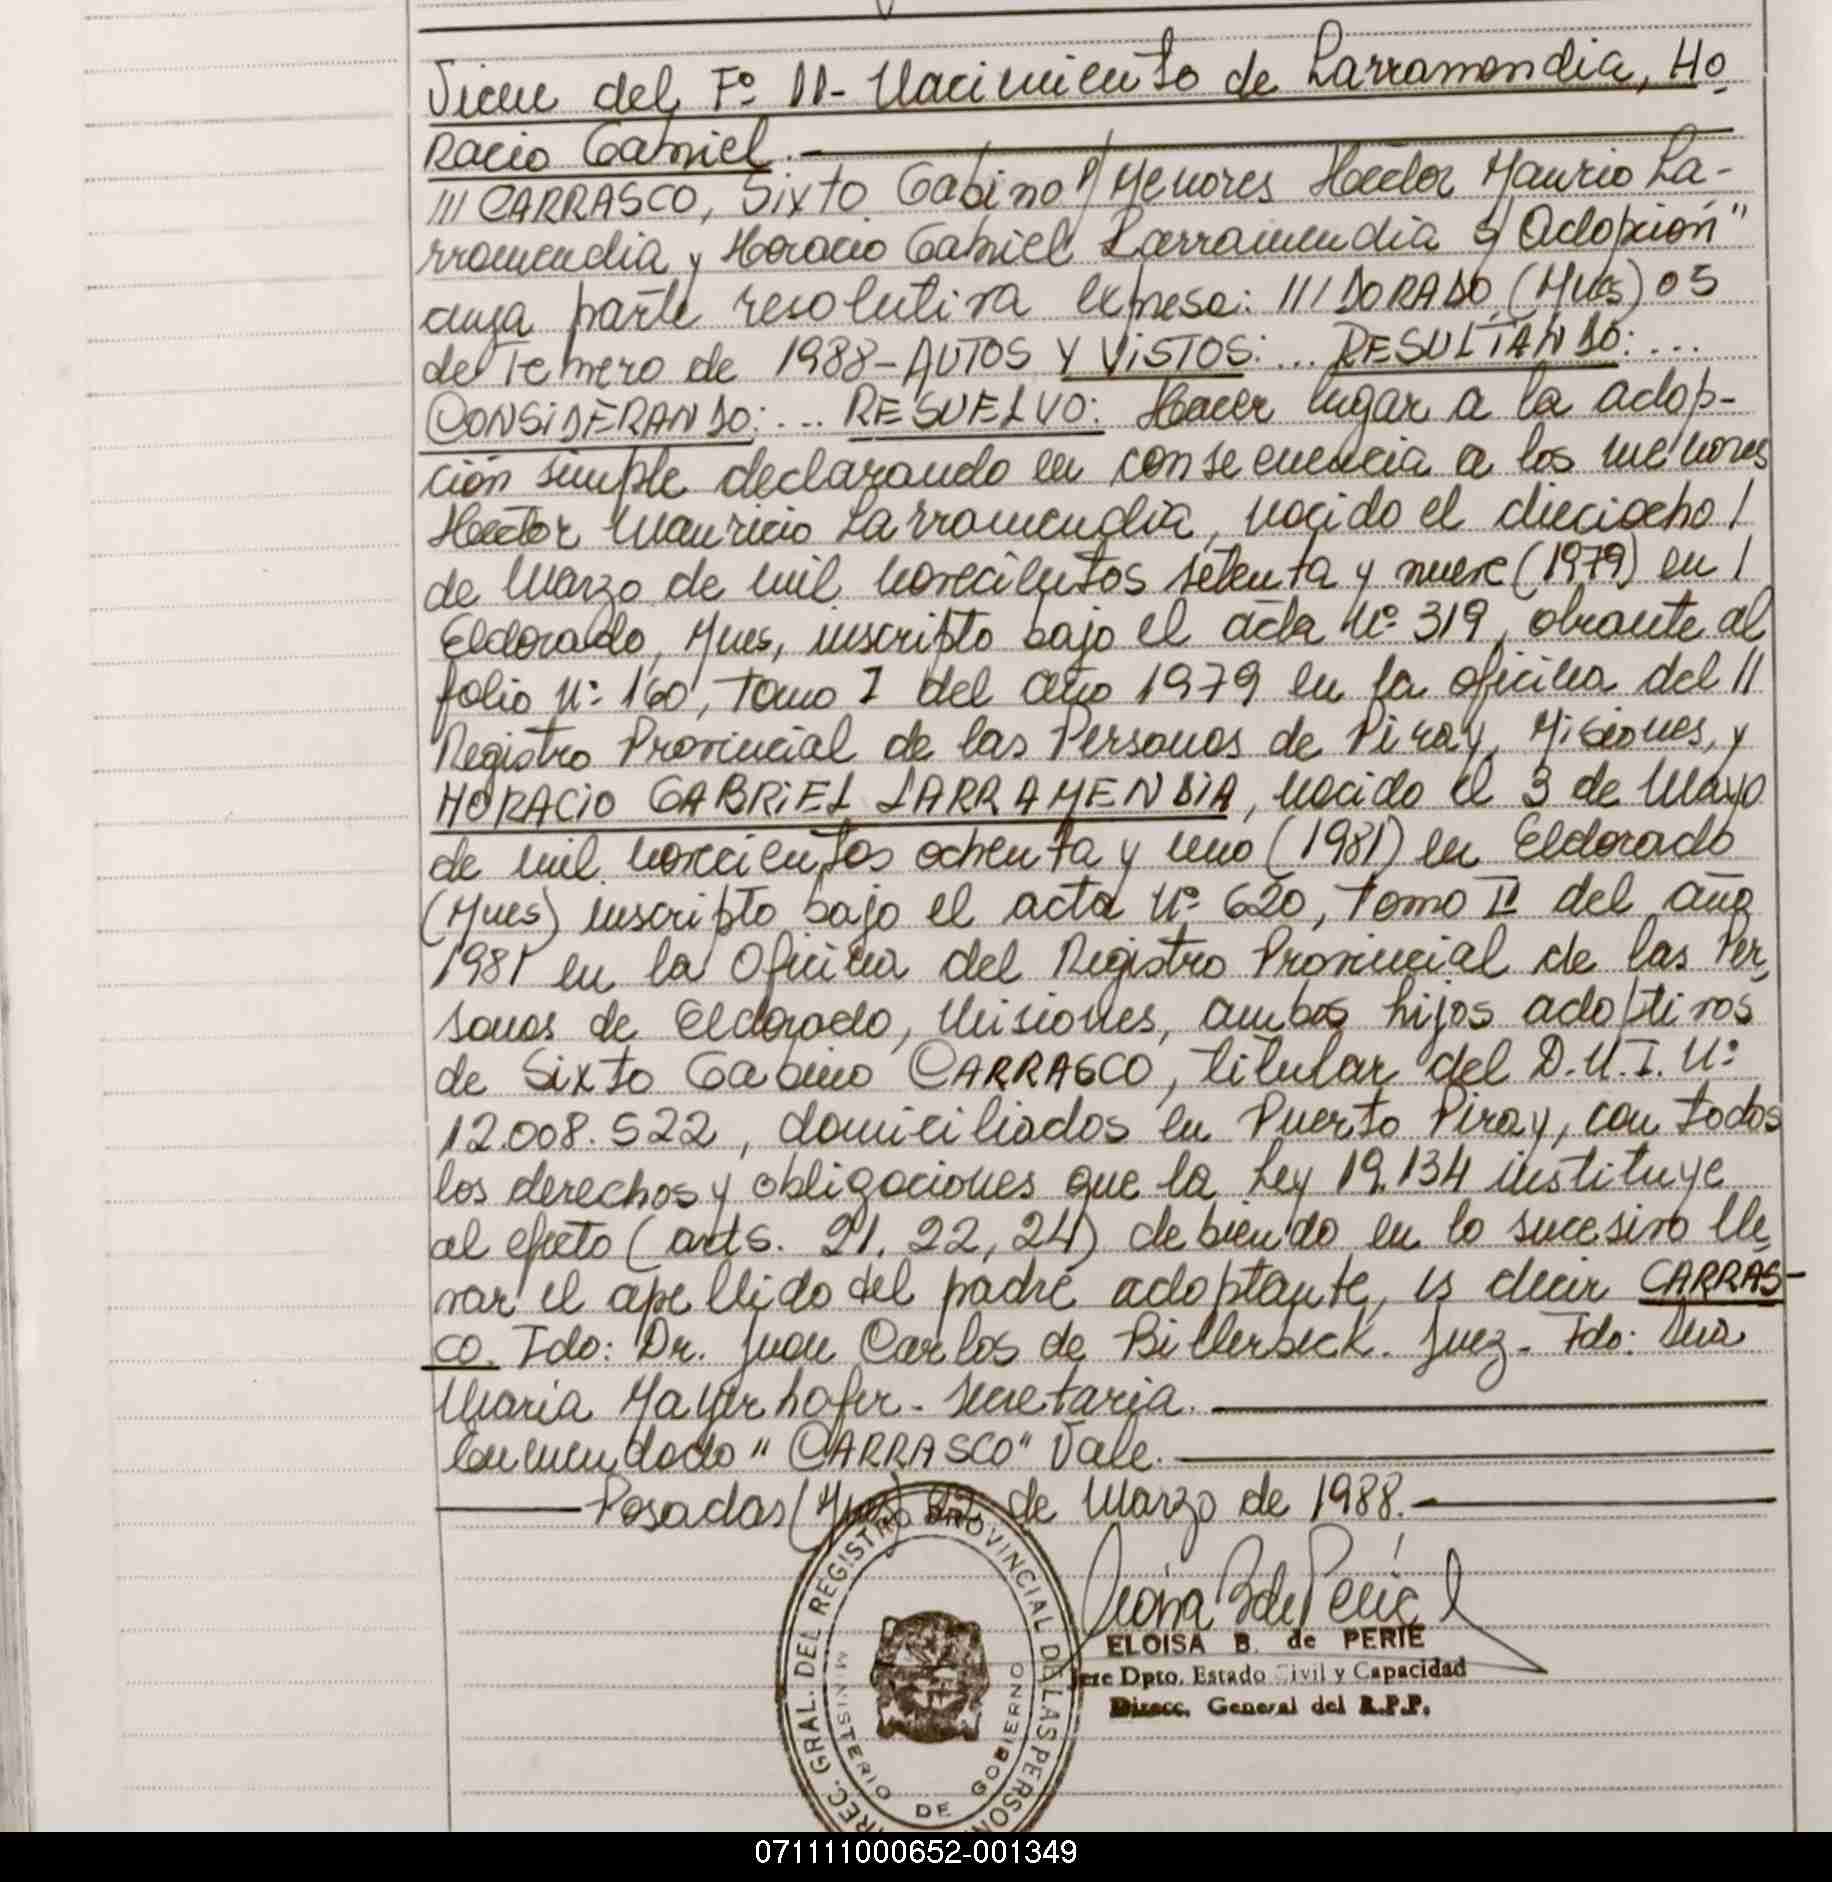 Viene del Fº 11- Nacimiento de Larramendia, Ho
racio Gabriel.
/// CARRASCO, Sixto Gabino P/ Menores Héctor Maurio La-
rramendia y Horacio Gabriel Larramendia S/ Adopción"
cuya parte resolutiva expresa: ///DORADO, (Mnes) 05
de Febrero de 1988- AUTOS Y VISTOS: ... RESULTANDO: ...
CONSIDERANDO: ... RESUELVO: Hacer lugar a la adop-
ción simple declarando en consecuencia a los menores
Héctor Mauricio Larramendia, nacido el dieciocho /
de Marzo de mil novecientos setenta y nueve (1979) en /
Eldorado, Mnes, inscripto bajo el acta Nº 319, obrante al
folio Nº 160, Tomo I del año 1979 en la oficina del //
Registro Provincial de las Personas de Piray, Misiones, y
HORACIO GABRIEL LARRAMENDIA, nacido el 3 de Mayo
de mil novecientos ochenta y uno (1981) en Eldorado
(Mnes) inscripto bajo el acta Nº 620, Tomo II del año
1981 en la Oficina del Registro Provincial de las Per
sonas de Eldorado, Misiones, ambos hijos adoptivos
de Sixto Gabino CARRASCO, titular del D.N.I. Nº
12.008.522, domiciliados en Puerto Piray, con todos
los derechos y obligaciones que la Ley 19.134 instituye
al efecto (arts. 21, 22, 24) debiendo en lo sucesivo lle
var el apellido del padre adoptante, es decir CARRAS-
CO. Fdo: Dr. Juan Carlos de Billerbeck. Juez- Fdo: Ana
María Mayerhofer- Secretaria.
Enmendado "CARRASCO" Vale.
Posadas (Mnes) 22 de Marzo de 1988.
ELOISA B. de PERIE
Jefe Dpto. Estado Civil y Capacidad
Direcc. General del R.P.P.
DIREC. GRAL. DEL REGISTRO PROVINCIAL DE LAS PERSONAS
MINISTERIO DE GOBIERNO
071111000652-001349